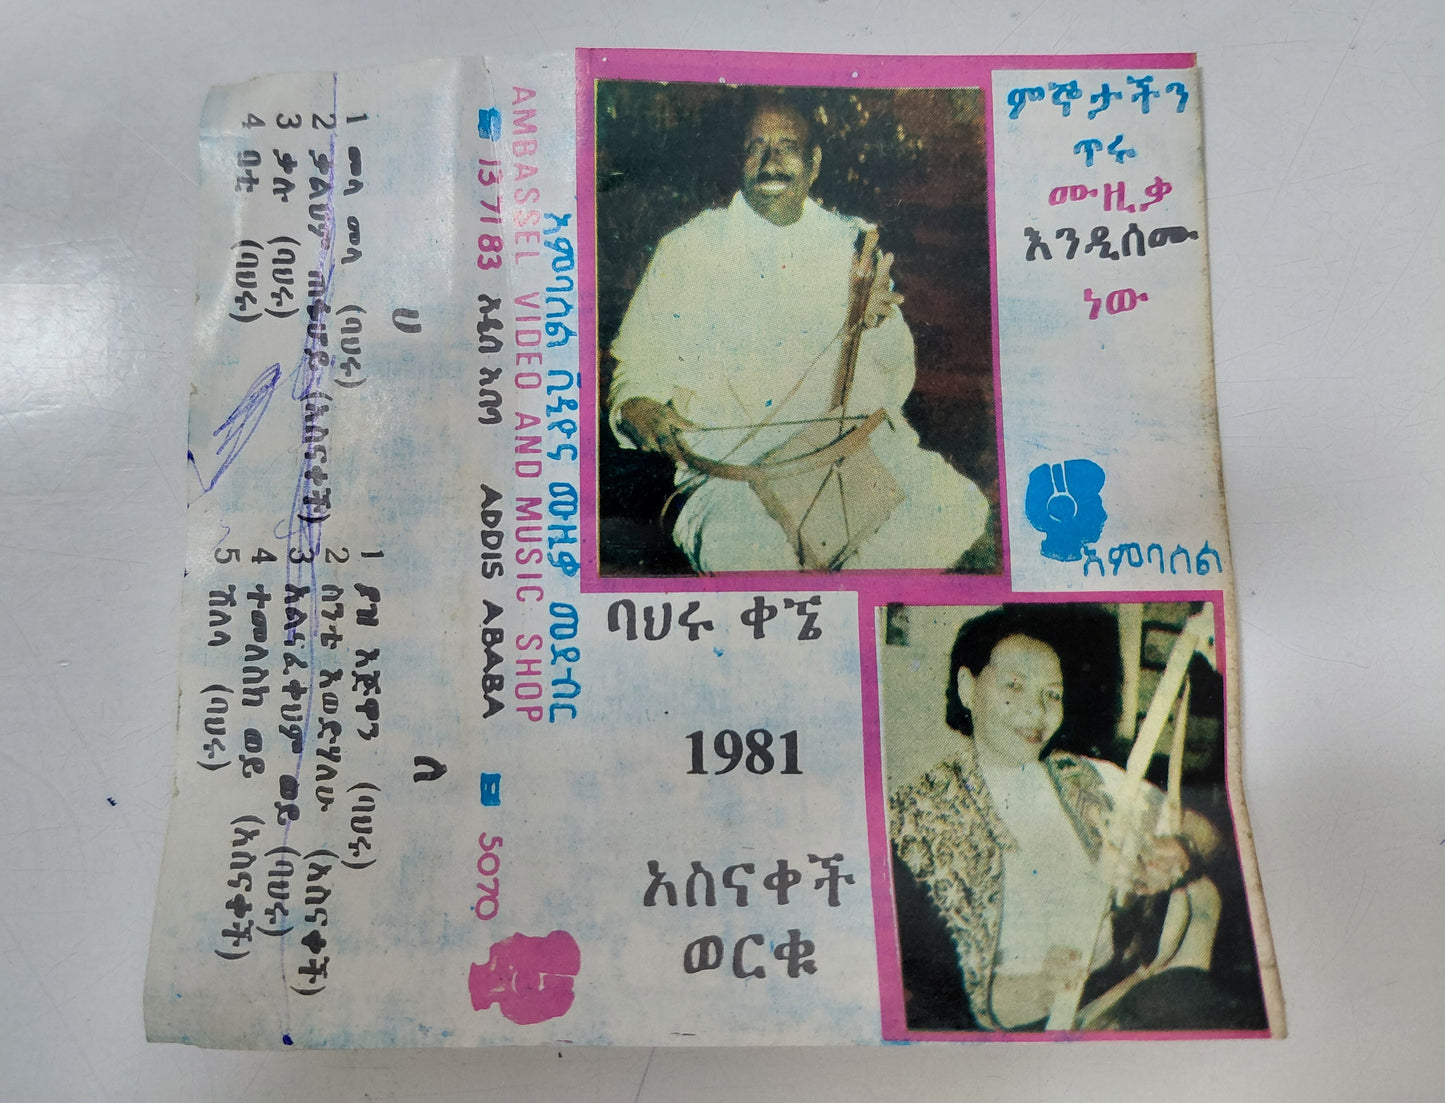 ምኞታችን
ጥሩ
ሙዚቃ
እንዲሰሙ
ነው
አምባሰል
ባህሩ ቀኜ
1981
አስናቀች
ወርቁ
አምባሰል ቪዲዮና ሙዚቃ መደብር
AMBASSEL VIDEO AND MUSIC SHOP
13 71 83 አዲስ አበባ ADDIS ABABA 5070
ሀ
1 መላ መላ (ባህሩ)
2 ቃልህም ጠፊህይ (አስናቀች)
3 ቃሉ (ባህሩ)
4 ባቲ (ባህሩ)
ለ
1 ያዝ እጅዋን (ባህሩ)
2 ስንቴ እወድሃለሁ (አስናቀች)
3 አልፋፈቀህም ወይ (ባህሩ)
4 ተመለስከ ወይ (አስናቀች)
5 ሽለላ (ባህሩ)